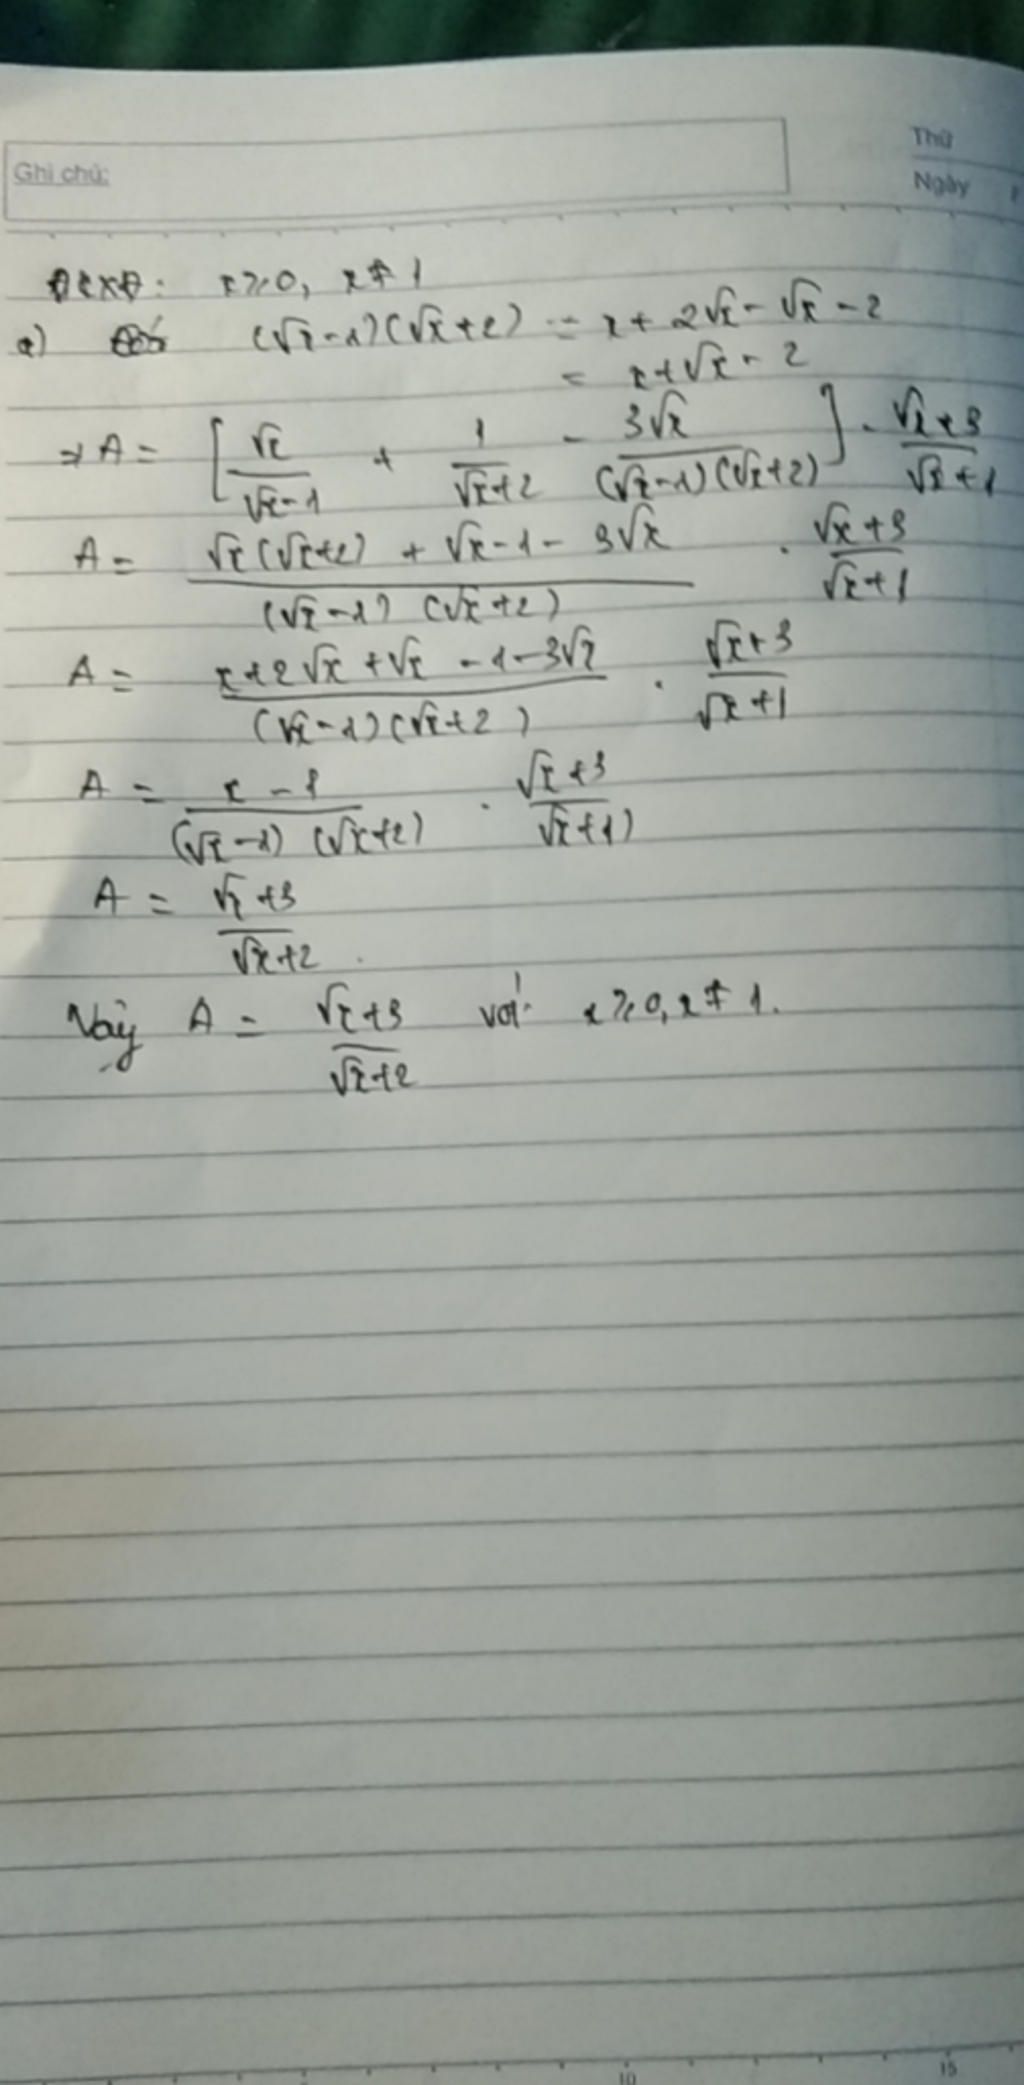 Ghi chú:
Thứ
Ngày
ĐKXĐ: x ≥ 0, x ≠ 1
a) Có (√x - 1)(√x + 2) = x + 2√x - √x - 2
= x + √x - 2
⇒ A = [√x/(√x - 1) + 1/(√x + 2) - 3√x/((√x - 1)(√x + 2))] . (√x + 3)/(√x + 1)
A = (√x(√x + 2) + √x - 1 - 3√x)/((√x - 1)(√x + 2)) . (√x + 3)/(√x + 1)
A = (x + 2√x + √x - 1 - 3√x)/((√x - 1)(√x + 2)) . (√x + 3)/(√x + 1)
A = (x - 1)/((√x - 1)(√x + 2)) . (√x + 3)/(√x + 1)
A = (√x + 3)/(√x + 2).
Vậy A = (√x + 3)/(√x + 2) với x ≥ 0, x ≠ 1.
10 15